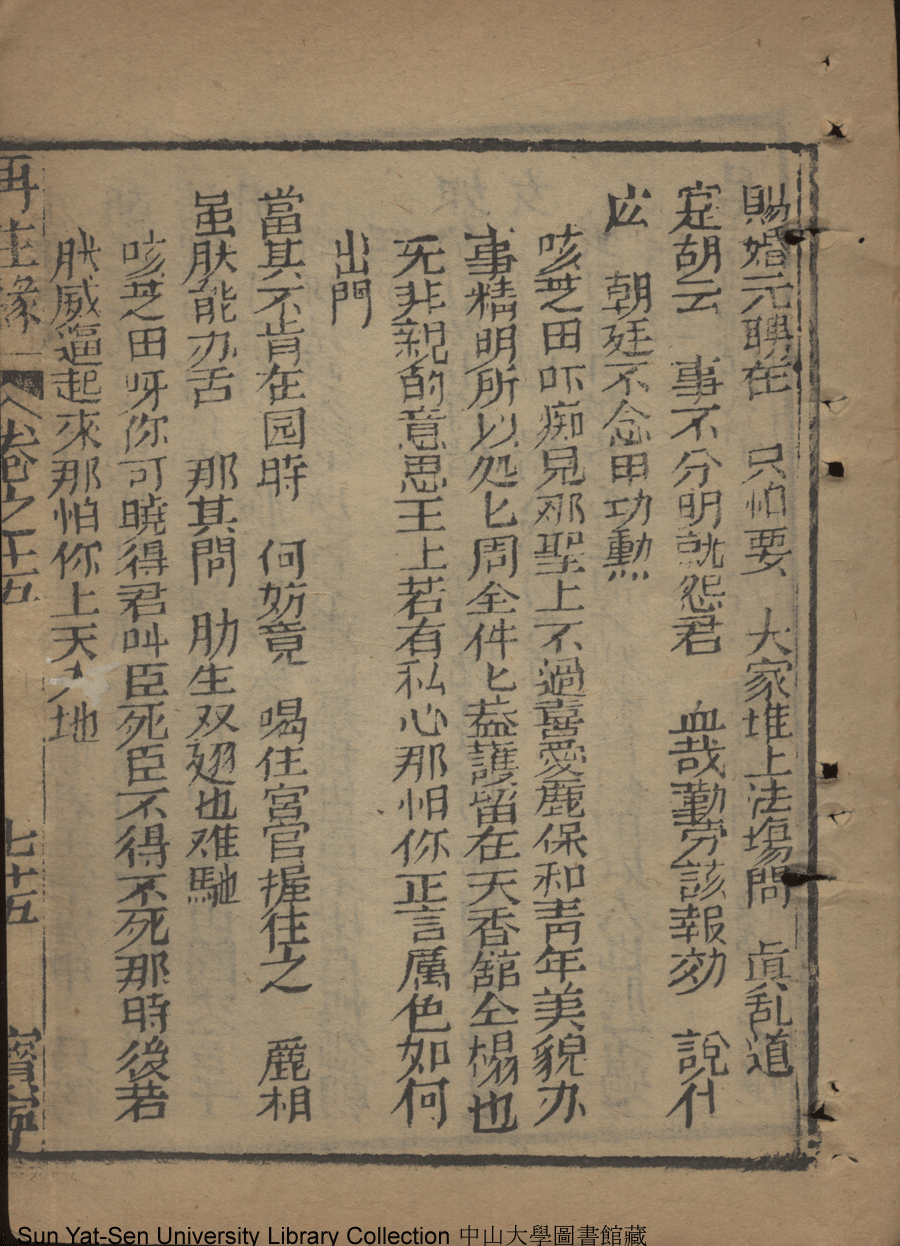 賜婚元聘在 只怕要 大家堆上法塲問 眞乱道
寔胡云 事不分明就怨君 血哉勤劳該報効 說什
庅 朝廷不念田功勲
咳芝田吓痴兒那聖上不過喜愛麗保和靑年美貌办
事精明所以処匕周全件匕益護留在天香舘仝榻也
无非親的意思王上若有私心那怕你正言厲色如何
出門
當其不肯在园時 何妨竟 喝住宮官握住之 麗相
虽肰能办舌 那其問 肋生双翅也难馳
咳芝田呀你可曉得君叫臣死臣不得不死那時後若
肰威逼起來那怕你上天入地
再生緣 卷之十五 七十五
Sun Yat-Sen University Library Collection 中山大學圖書館藏